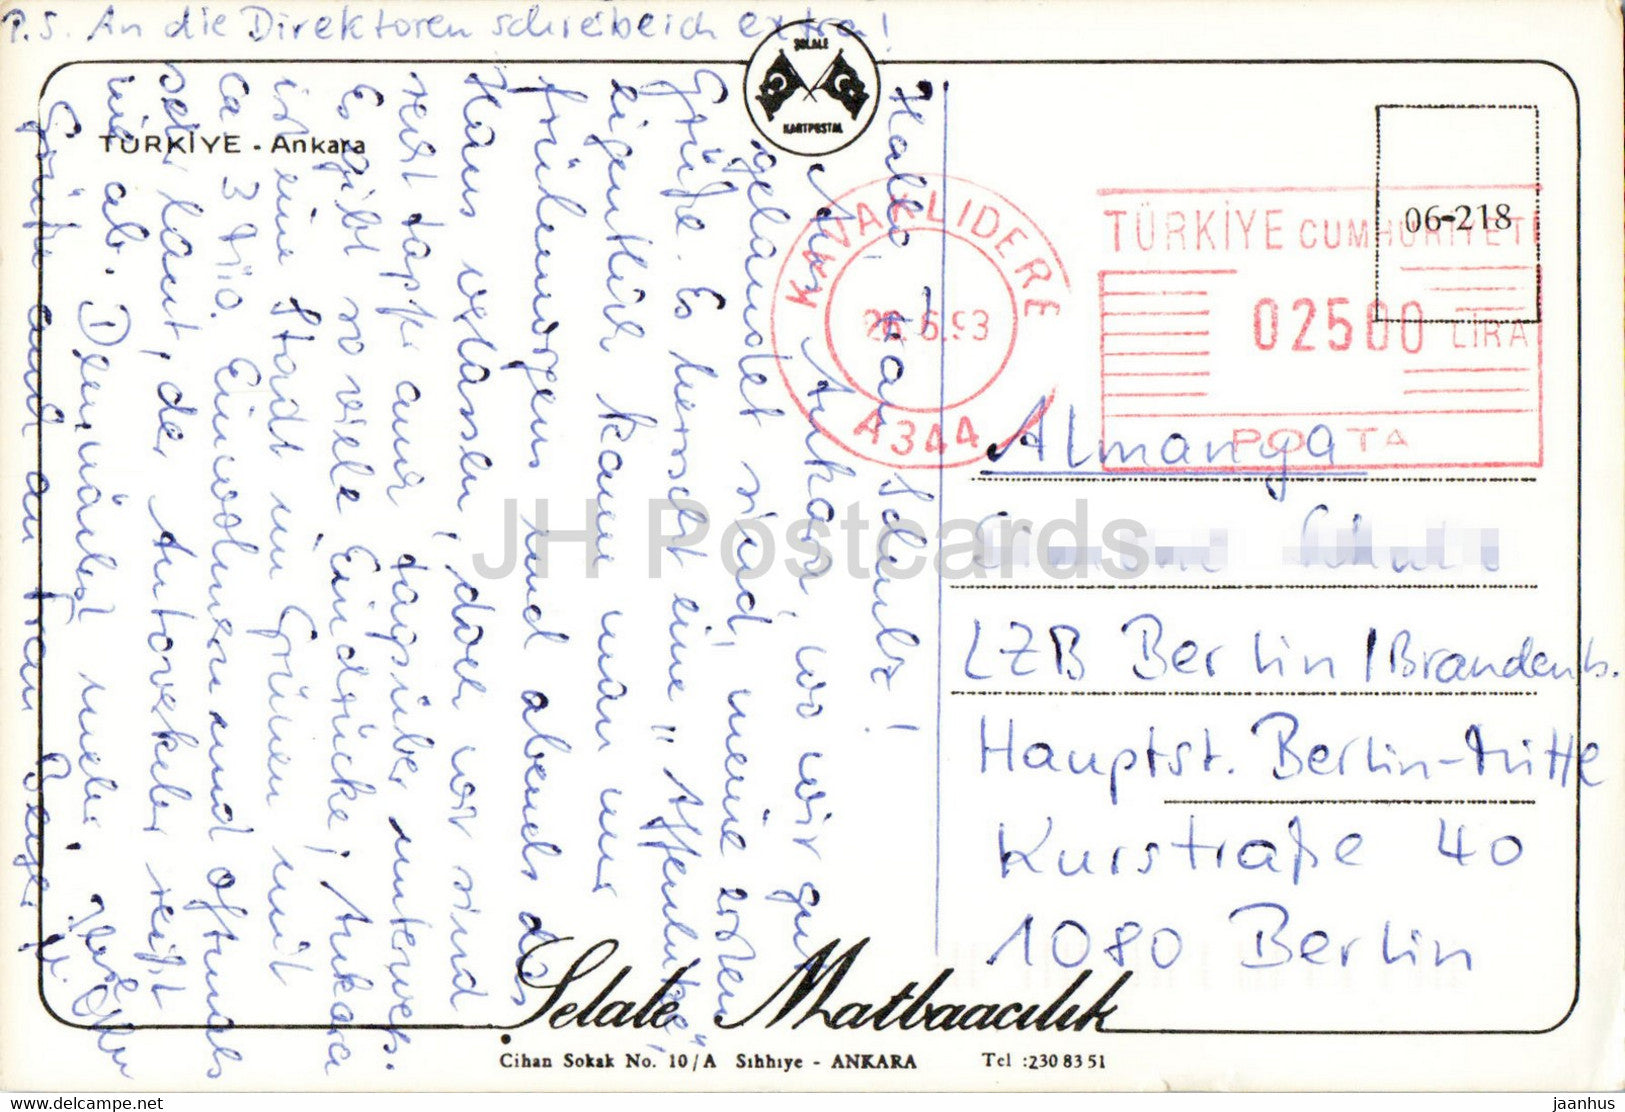 P.S. An die Direktoren schreibe ich extra!
ŞELALE
KARTPOSTAL
TÜRKİYE - Ankara
Hallo, Frau Schulz!
Aus Ankara, wo wir gut
gelandet sind, meine ersten
Grüße. Es herrscht eine "Affenhitze",
eigentlich kann man nur
frühmorgens und abends das
Haus verlassen, doch wir sind
seit tapfer auch tagsüber unterwegs.
Es gibt so viele Eindrücke; Ankara
ist eine Stadt im Grünen mit
ca 3 Mio. Einwohnern und oftmals
sehr laut, der Autoverkehr reißt
nie ab. Demnächst mehr.
Grüße auch an Frau
KAVAKLIDERE
6.93
A344
TÜRKİYE CUMHURİYETİ
02500 LİRA
POSTA
06-218
Almanya
LZB Berlin/Brandenb.
Hauptst. Berlin-Mitte
Kurstraße 40
1080 Berlin
JH Postcards
Şelale Matbaacılık
Cihan Sokak No. 10/A Sıhhıye - ANKARA Tel :230 83 51
www.delcampe.net
jaanhus